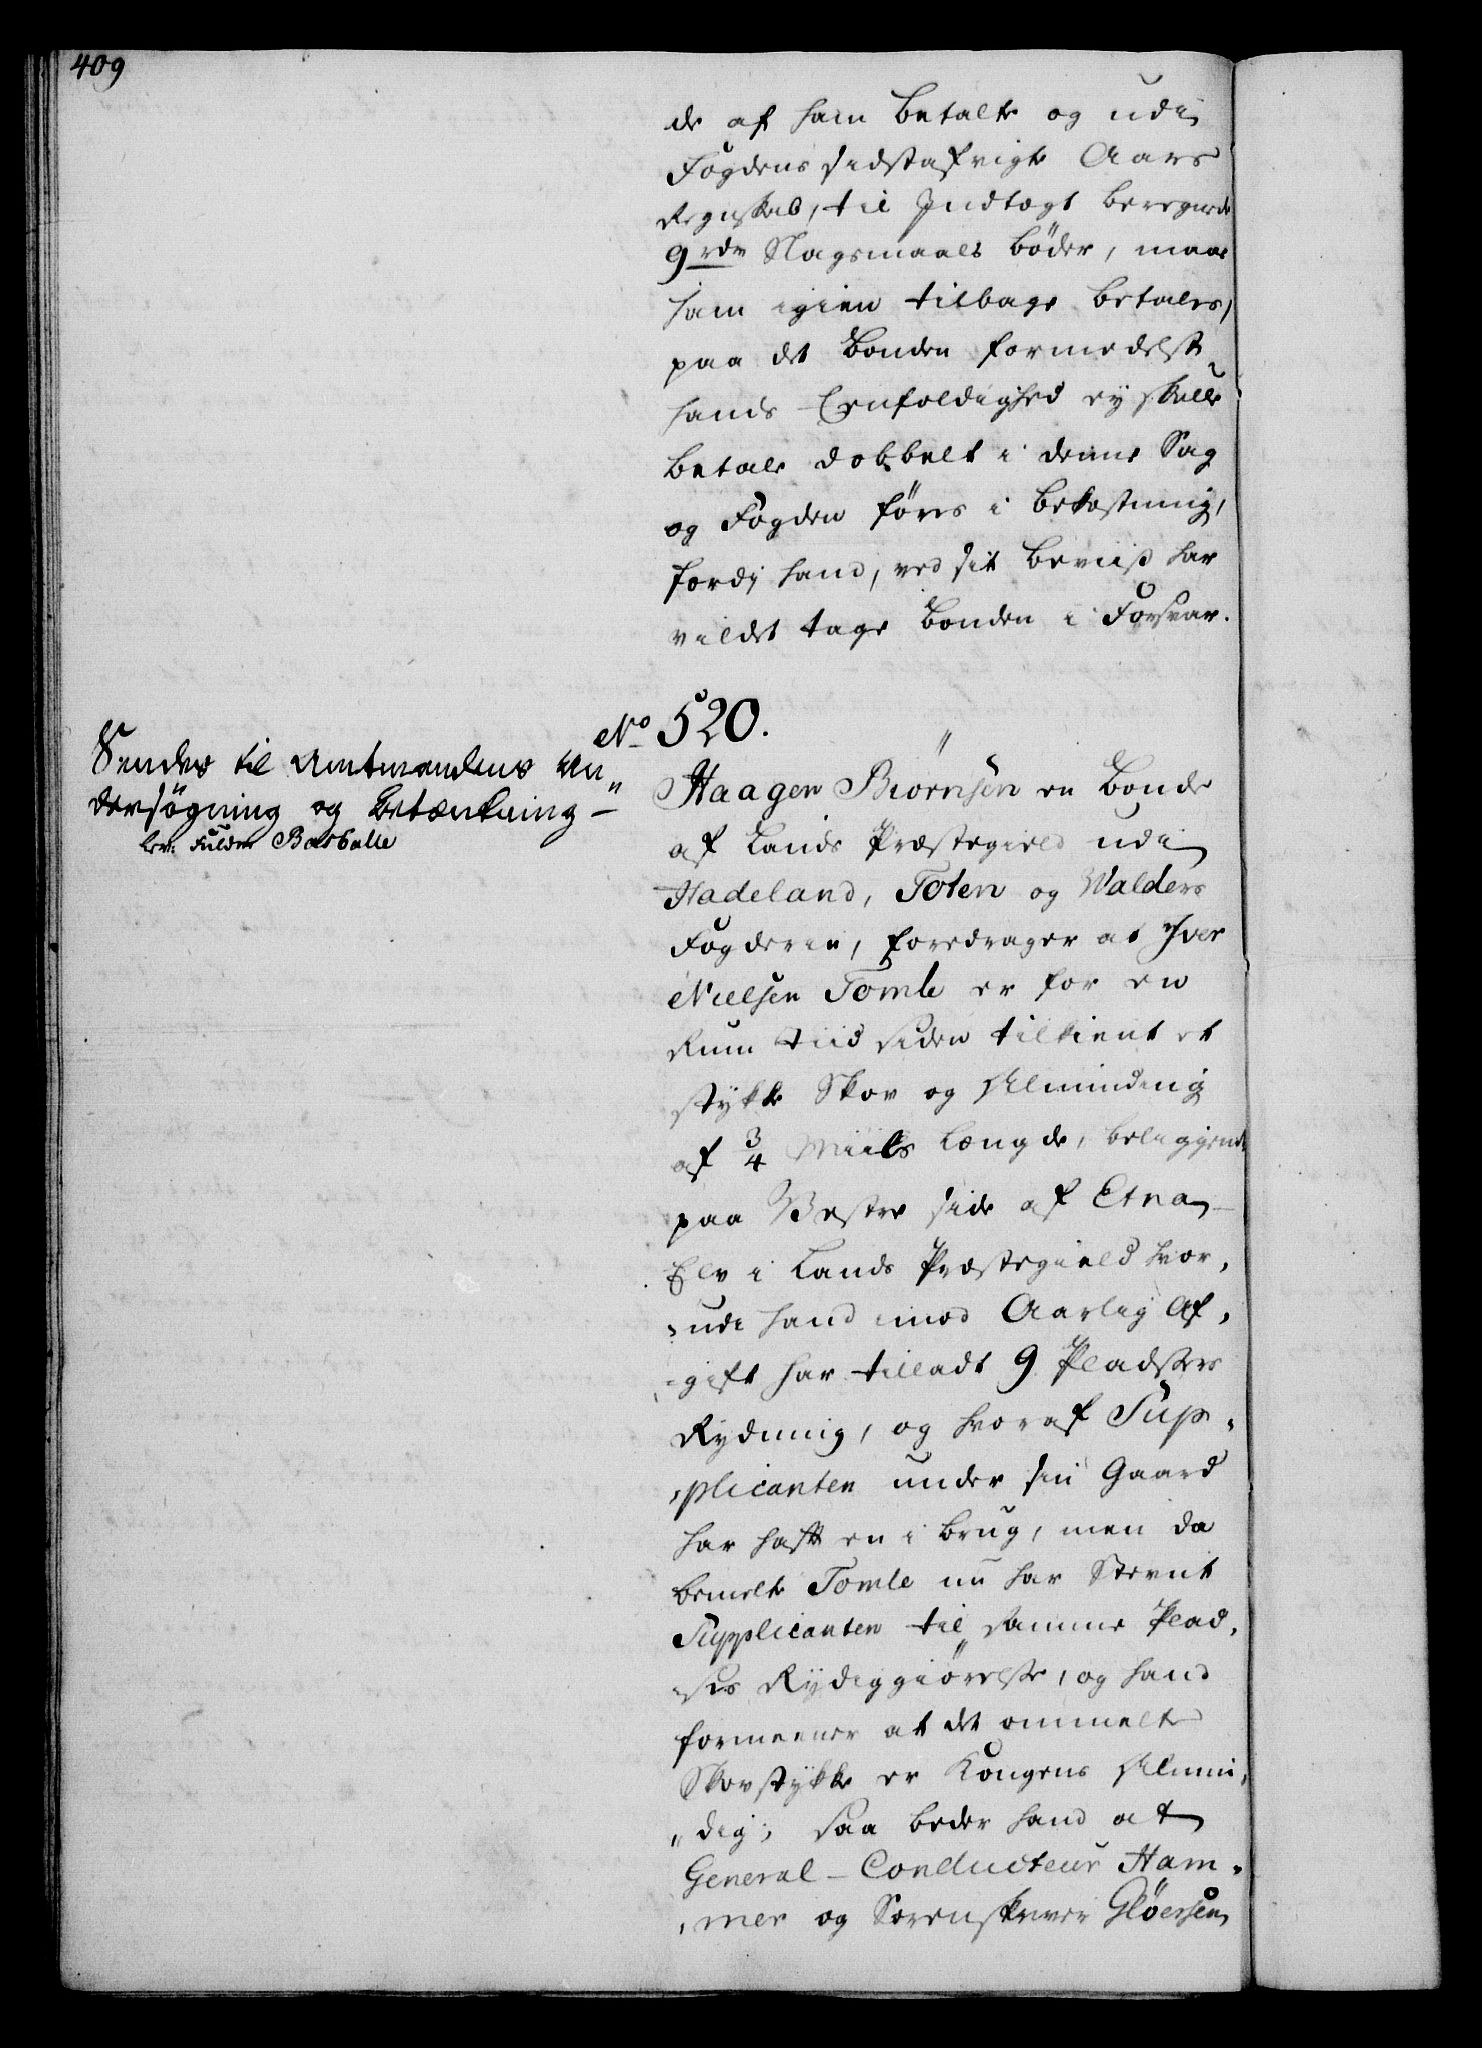 409
de af ham betalte og udi
Fogdens sidstafvigte Aars
Regnskab, til Indtægt beregnede
9 rdr Slagsmaals bøder, maae
ham igien tilbage betales,
paa det Bonden formedelst
hands Eenfoldighed ey skulle
betale dobbelt i denne Sag
og Fogden føres i bekostning,
fordj hand, ved sit beviis har
vildet tage bonden i Forsvar.
No 520.
Sendes til Amtmandens Un„
dersøgning og betænkning –
Haagen Biørnsen en bonde
af Lands Præstegield udi
Hadeland, Toten og Walders
Fogderie, foredrager at Iver
Nielsen Tomle er for en
Rum tiid siden tilkient et
stykke Skov og Alminding
af 3/4 Miils Længde, beliggende
paa Vestre side af Etna
Elv i Lands Præstegield hvor,
„udi hand imod Aarlig Af,
„gift har tilladt 9 Pladsers
Rydning, og hvoraf Sup,
„plicanten under sin Gaard
har haft en i brug, men da
bemelte Tomle nu har Stevnt
Supplicanten til samme Plad,
„ses Rydiggiørelse, og hand
formeener at det ommelte
Skovstykke er Kongens Almin,
„dig, saa beder hand at
General-Conducteur Ham,
„mer og Sorenskriver Gløersen